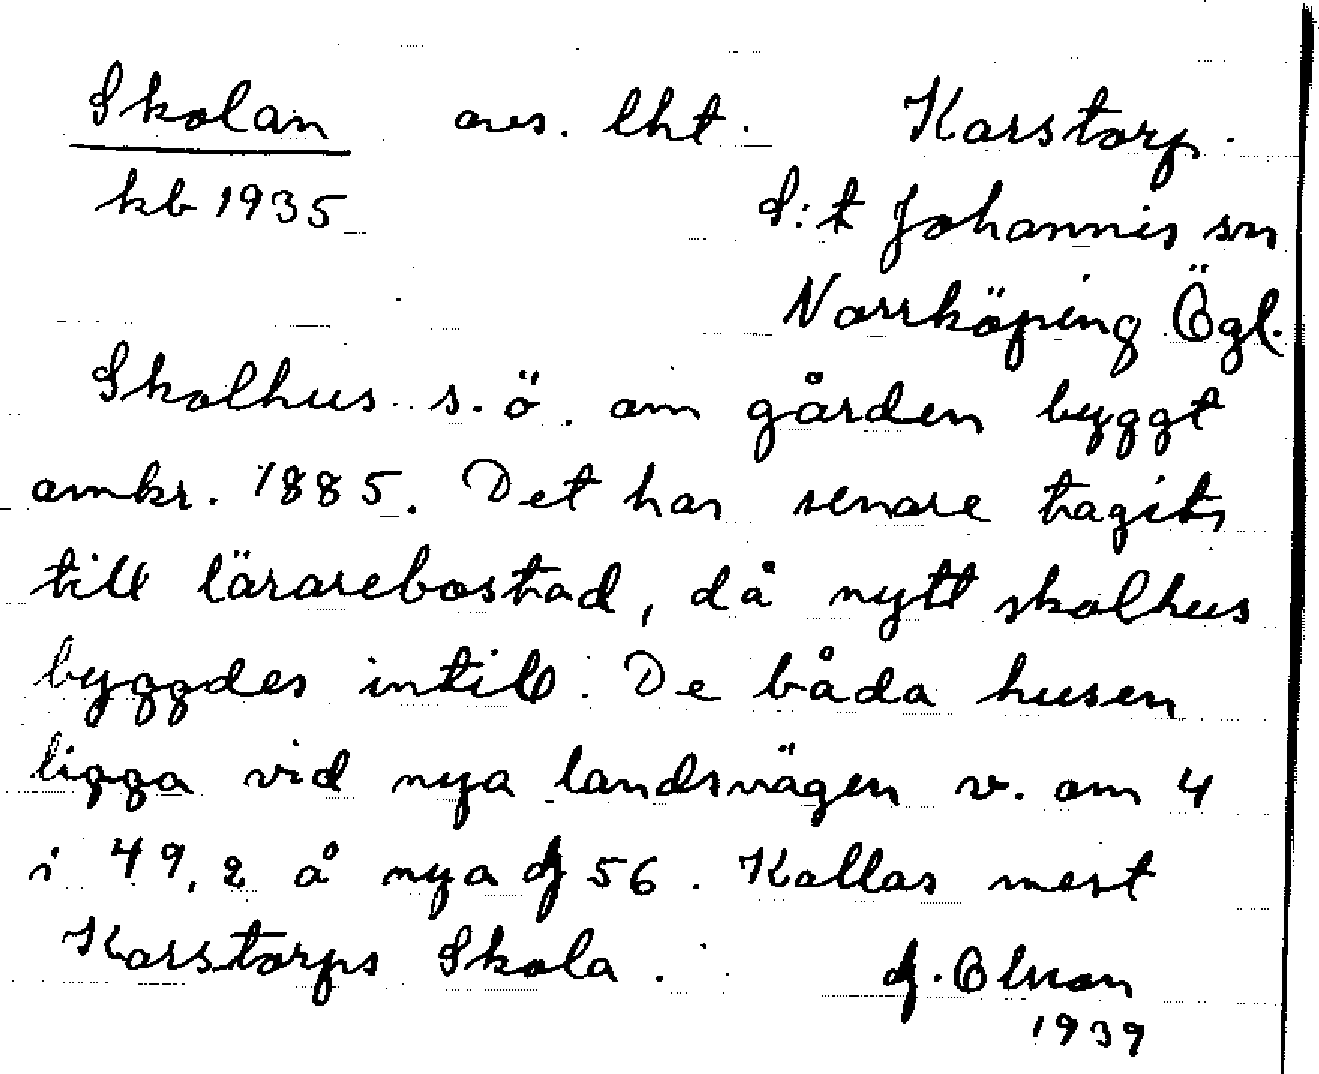 Skolan avs. lht. Karstorp.
kb 1935 S:t Johannis sn
Norrköping Ögl.
Skolhus s.ö. om gården byggt
omkr. 1885. Det har senare tagits
till lärarebostad, då nytt skolhus
byggdes intill. De båda husen
ligga vid nya landsvägen v. om 4
i 49,2 å nya J 56. Kallas mest
Karstorps Skola. J. Elnson
1939